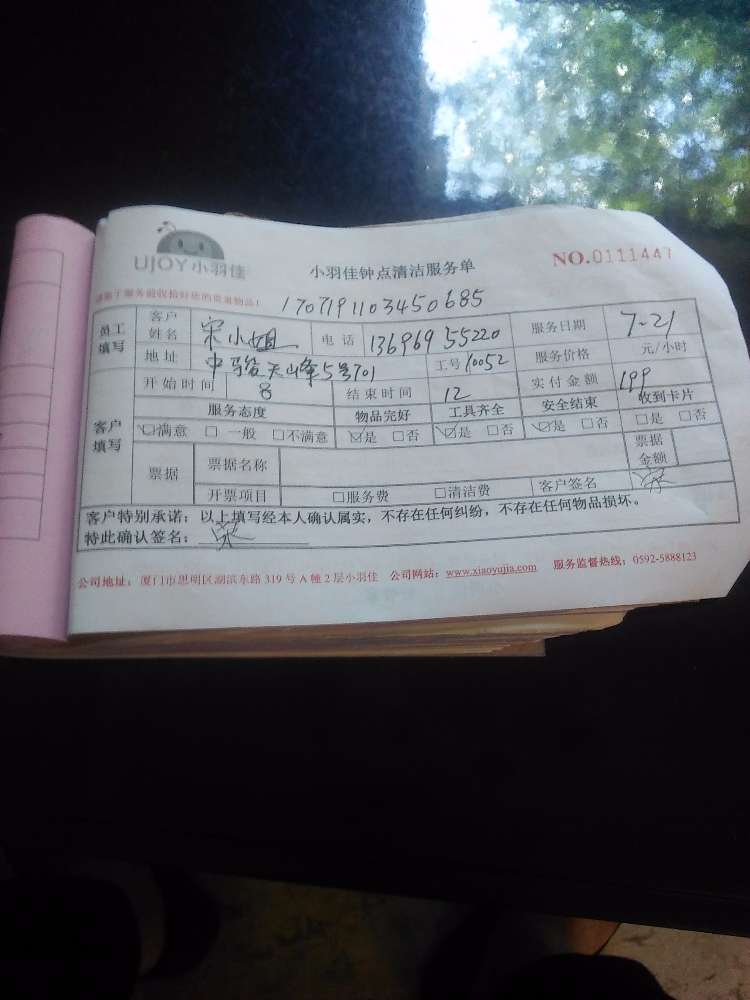 UJOY小羽佳
小羽佳钟点清洁服务单
NO.0111447
170719110345068５
员工填写 客户姓名 宋小姐 电话 13696955220 服务日期 7-21
地址 中骏天峰5号701 工号 10052 服务价格 元/小时
客户填写 开始时间 8 结束时间 12 实付金额 199
服务态度 物品完好 工具齐全 安全结束 收到卡片
☑满意 □一般 □不满意 ☑是 □否 ☑是 □否 ☑是 □否 □是 □否
票据 票据名称 票据金额
开票项目 □服务费 □清洁费 客户签名 宋
客户特别承诺：以上填写经本人确认属实，不存在任何纠纷，不存在任何物品损坏。
特此确认签名： 宋
公司地址：厦门市思明区湖滨东路319号A幢2层小羽佳 公司网站：www.xiaoyujia.com 服务监督热线：0592-5888123